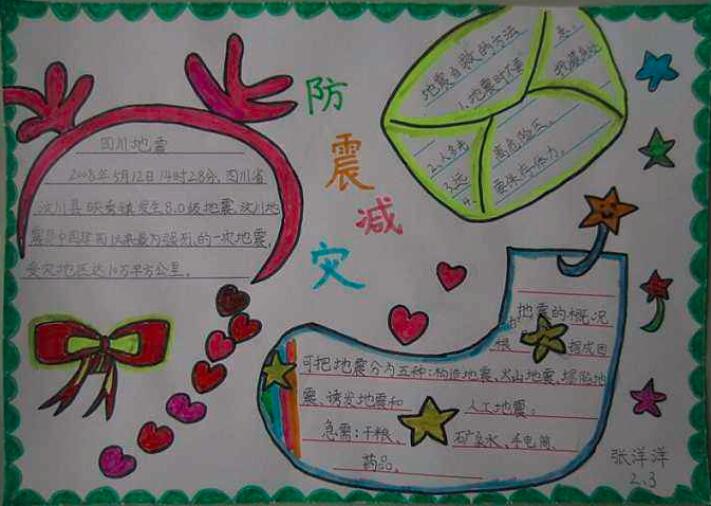 四川地震
2008年5月12日14时28分,四川省
汶川县映秀镇发生8.0级地震,汶川地
震是中国建国以来最为强烈的一次地震,
受灾地区达10万平方公里。
防
震
减
灾
地震自救的方法
1.地震时不要
2.人多
3.远离危险区。
4.要保存体力。
地震的概况
根
可把地震分为五种:构造地震、火山地震、塌陷地
震、诱发地震和人工地震。
急需:干粮、矿泉水、手电筒、
药品。
张洋洋
2.3